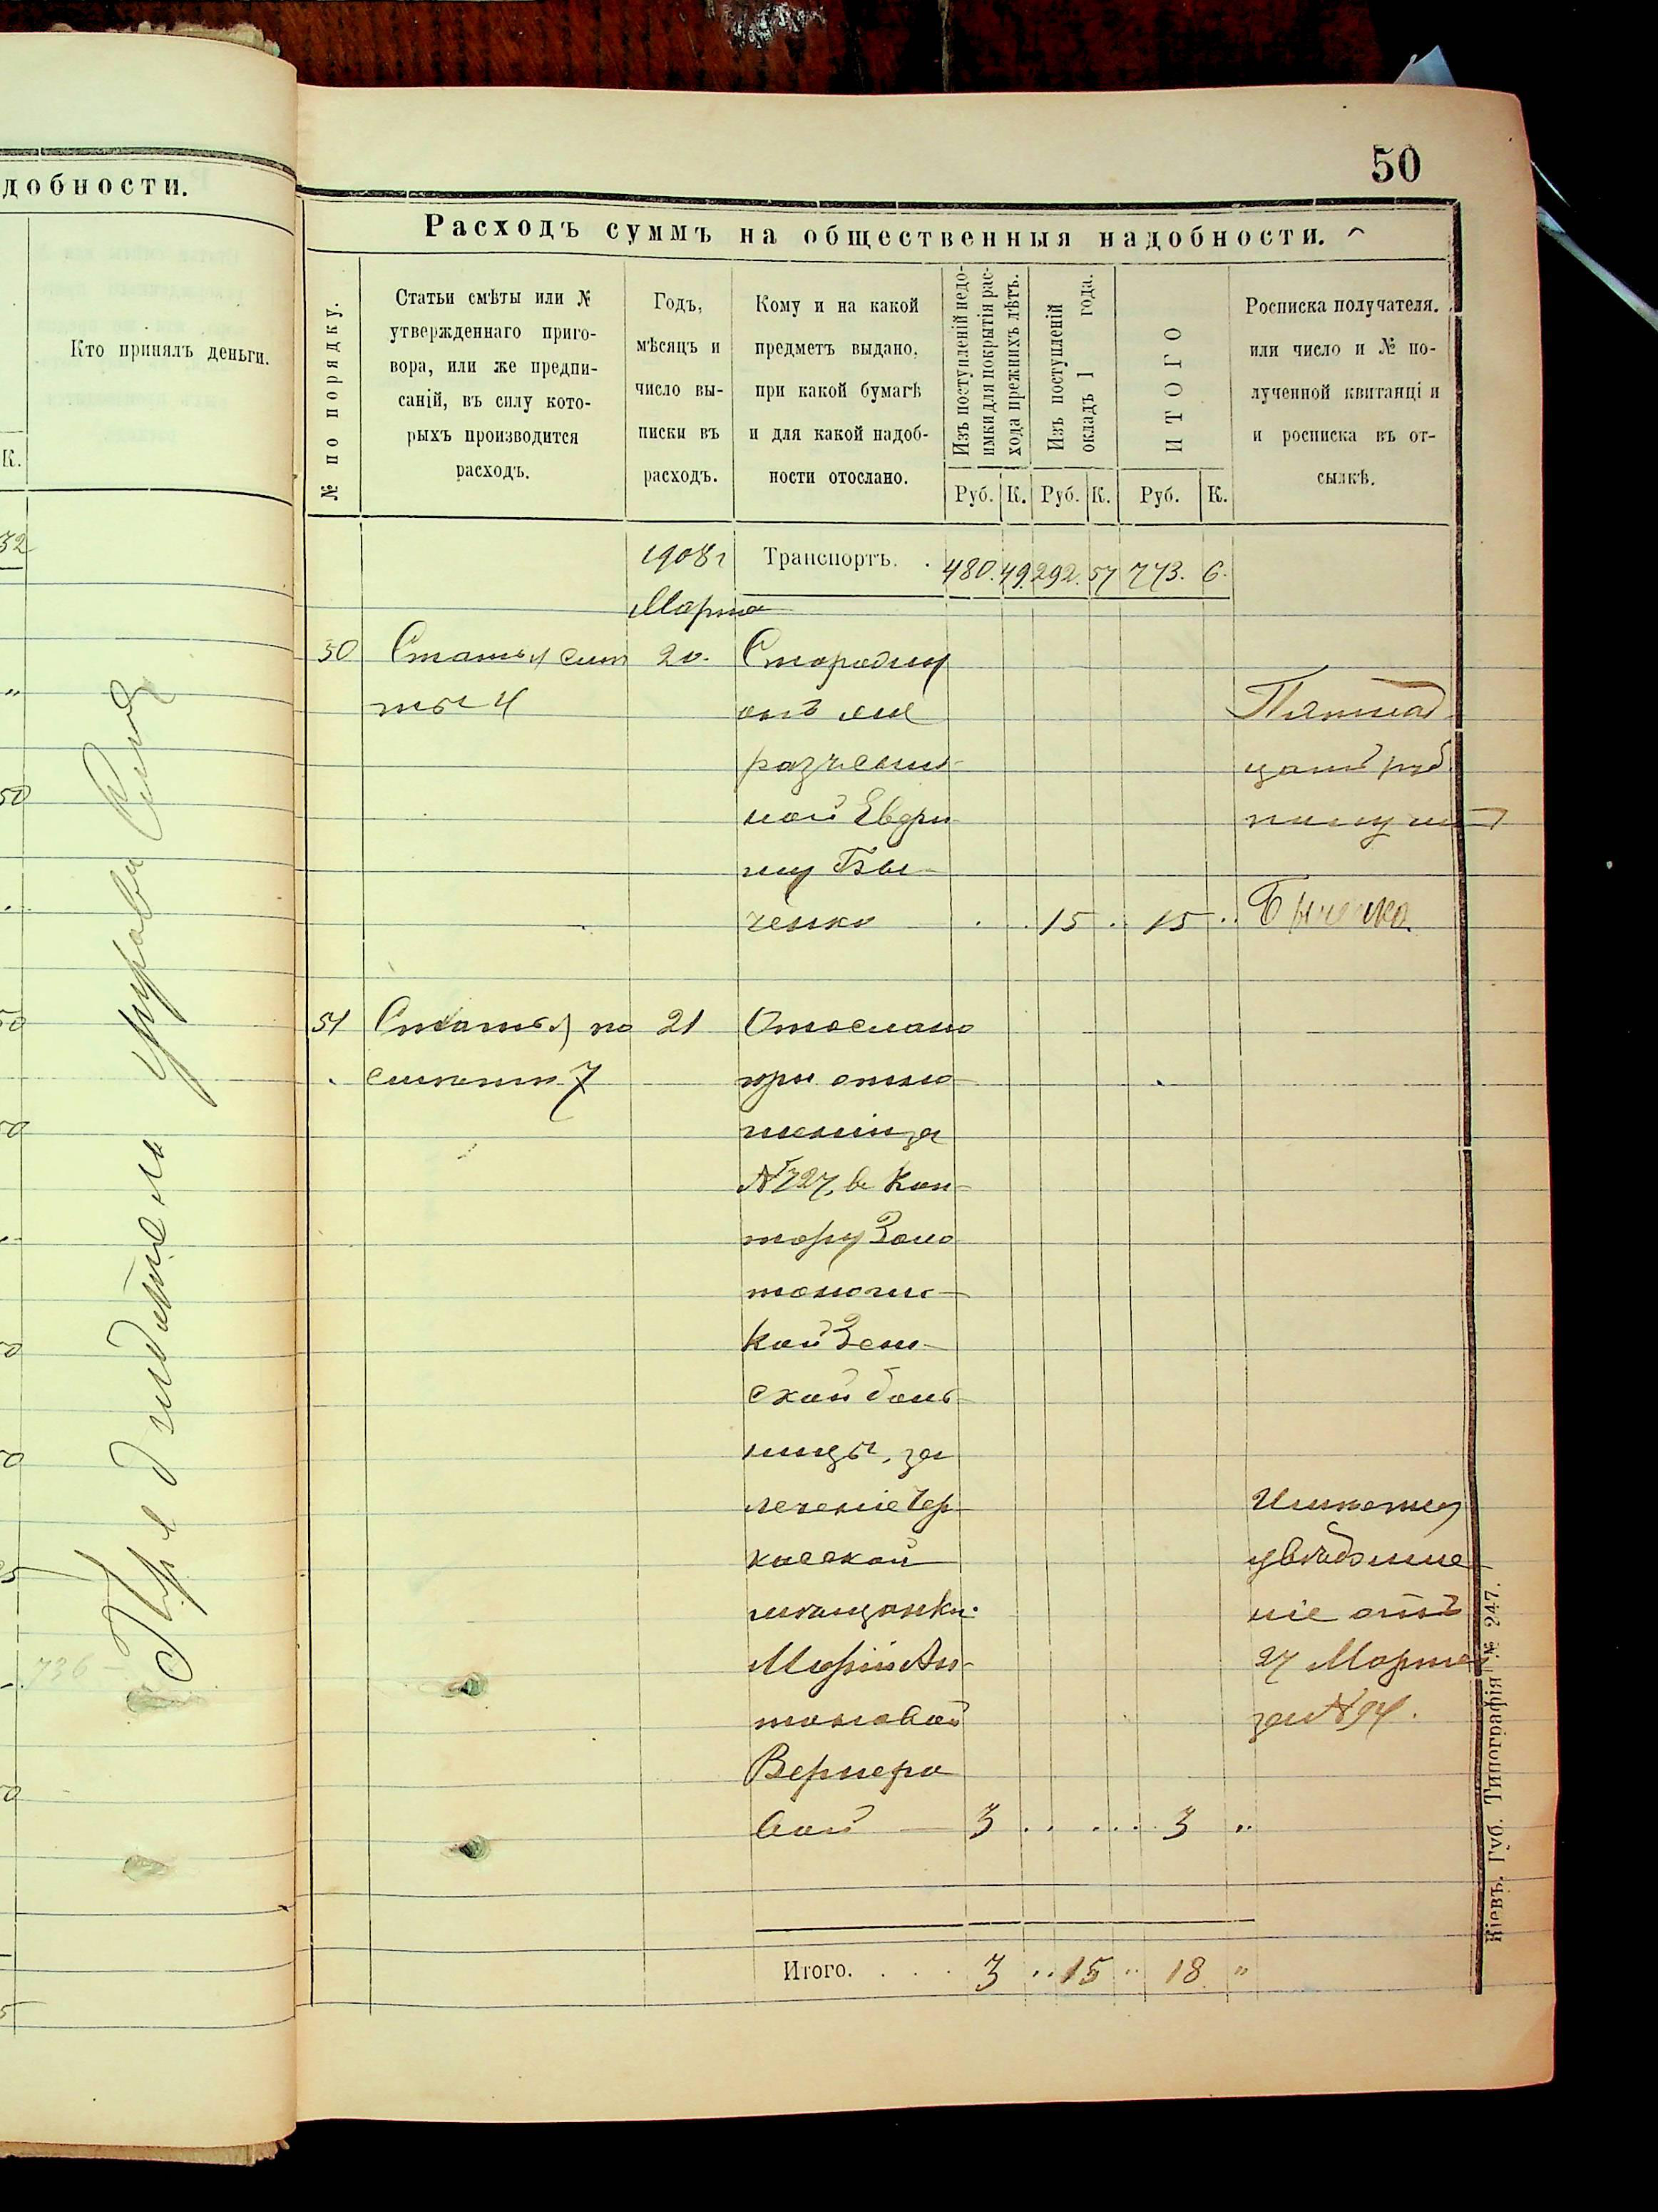 добности.
Кто принялъ деньги.
К.
32
"
50
50
50
50
50
25
736 -
50
5
Предсѣдатель управы
50
Расходъ суммъ на общественныя надобности.
№ по порядку.
Статьи смѣты или №
утвержденнаго приго-
вора, или же предпи-
саній, въ силу кото-
рыхъ производится
расходъ.
Годъ,
мѣсяцъ и
число вы-
писки въ
расходъ.
Кому и на какой
предметъ выдано,
при какой бумагѣ
и для какой надоб-
ности отослано.
Изъ поступленій недо-
имки для покрытія рас-
хода прежнихъ лѣтъ.
Изъ поступленій
окладъ 1 года.
ИТОГО
Руб. К. Руб. К. Руб. К.
Росписка получателя,
или число и № по-
лученной квитанціи
и росписка въ от-
сылкѣ.
1908 г Транспортъ. . 480. 49. 292. 57 773. 6.
Марта
50 Статья смѣ 20.
ты 4 Пятнад
разчесы-
цать руб.
ной Евдок
получил
Бы-
ченко . . . 15 . . 15 . . Быченко.
51 Статья по 21 Отослано
смѣтѣ 7 при отно
шеніи за
№ 727, в Кон-
тору Золо
тоношс-
кой Зем-
ской боль
ницы, за
леченіе Чер-
касской
мѣщанки
Маріи Ан-
тоновой
Вернеро
вой — 3 . . . . . . 3 "
Имѣется
увѣдомле
ніе отъ
27 Марта
за № 94.
Итого. . . . 3 " 15 " 18 "
Кіевъ. Губ. Типографія № 247.